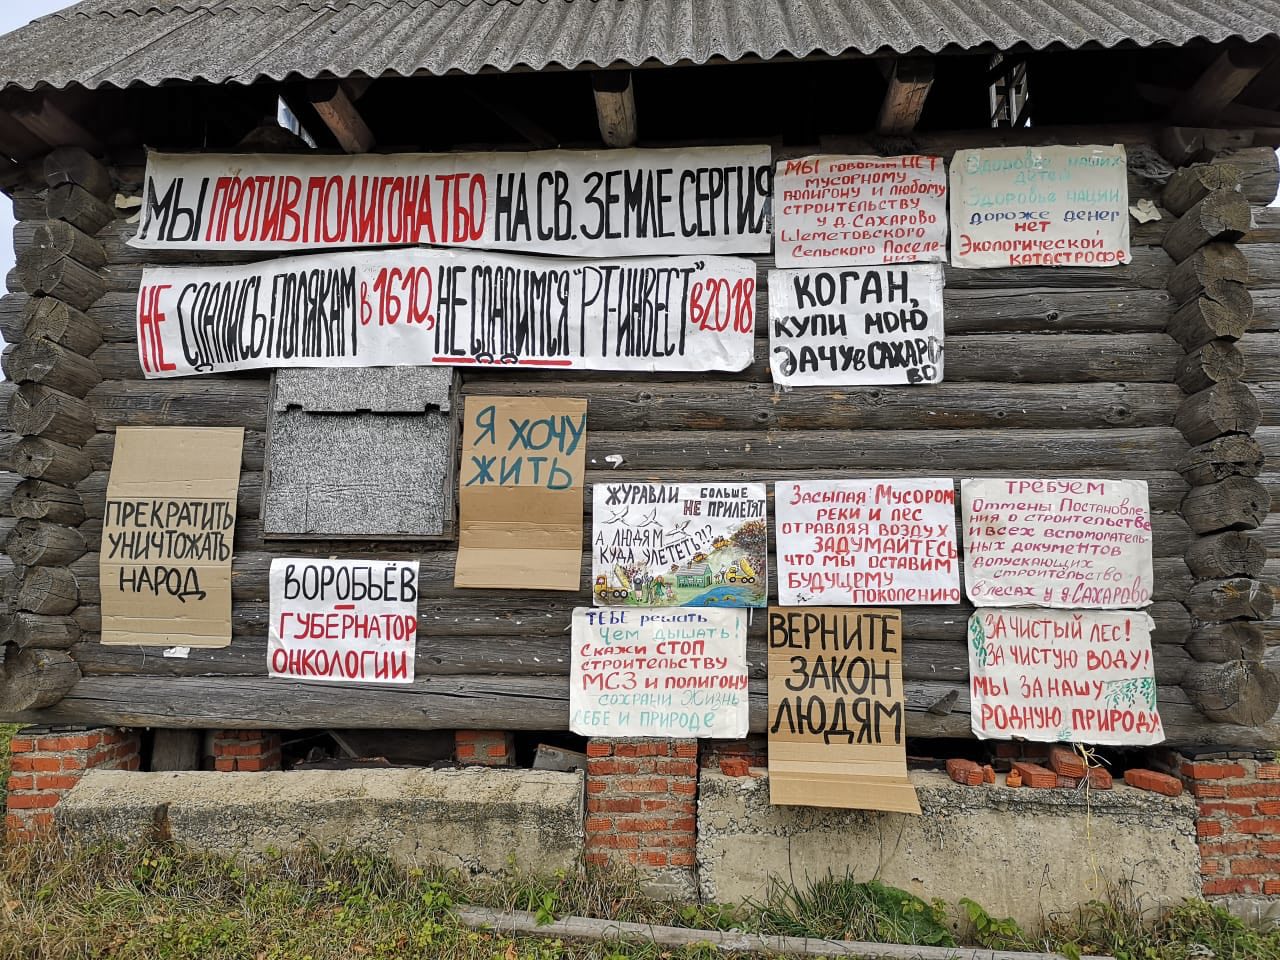 МЫ ПРОТИВ ПОЛИГОНА ТБО НА СВ. ЗЕМЛЕ СЕРГИЯ
НЕ СДАЛИСЬ ПОЛЯКАМ В 1610, НЕ СДАДИМСЯ "РТ-ИНВЕСТ" В 2018
МЫ ГОВОРИМ НЕТ
МУСОРНОМУ
ПОЛИГОНУ И ЛЮБОМУ
СТРОИТЕЛЬСТВУ
У Д. САХАРОВО
ШЕМЕТОВСКОГО
СЕЛЬСКОГО ПОСЕЛЕ-
НИЯ
ЗДОРОВЬЕ НАШИХ
ДЕТЕЙ
ЗДОРОВЬЕ НАЦИИ
ДОРОЖЕ ДЕНЕГ
НЕТ
ЭКОЛОГИЧЕСКОЙ
КАТАСТРОФЕ
КОГАН,
КУПИ МОЮ
ДАЧУ В САХАРО
ВО
ПРЕКРАТИТЬ
УНИЧТОЖАТЬ
НАРОД
Я ХОЧУ
ЖИТЬ
ВОРОБЬЁВ
–
ГУБЕРНАТОР
ОНКОЛОГИИ
ЖУРАВЛИ БОЛЬШЕ
НЕ ПРИЛЕТЯТ
А ЛЮДЯМ
КУДА УЛЕТЕТЬ?!?
ЗАСЫПАЯ МУСОРОМ
РЕКИ И ЛЕС
ОТРАВЛЯЯ ВОЗДУХ
ЗАДУМАЙТЕСЬ
ЧТО МЫ ОСТАВИМ
БУДУЩЕМУ
ПОКОЛЕНИЮ
ТРЕБУЕМ
ОТМЕНЫ ПОСТАНОВЛЕ-
НИЯ О СТРОИТЕЛЬСТВЕ
И ВСЕХ ВСПОМОГАТЕЛЬ-
НЫХ ДОКУМЕНТОВ
ДОПУСКАЮЩИХ
СТРОИТЕЛЬСТВО
В ЛЕСАХ У Д. САХАРОВО
ТЕБЕ РЕШАТЬ
ЧЕМ ДЫШАТЬ!
СКАЖИ СТОП
СТРОИТЕЛЬСТВУ
МСЗ И ПОЛИГОНУ
СОХРАНИ ЖИЗНЬ
СЕБЕ И ПРИРОДЕ
ВЕРНИТЕ
ЗАКОН
ЛЮДЯМ
ЗА ЧИСТЫЙ ЛЕС!
ЗА ЧИСТУЮ ВОДУ!
МЫ ЗА НАШУ
РОДНУЮ ПРИРОДУ!